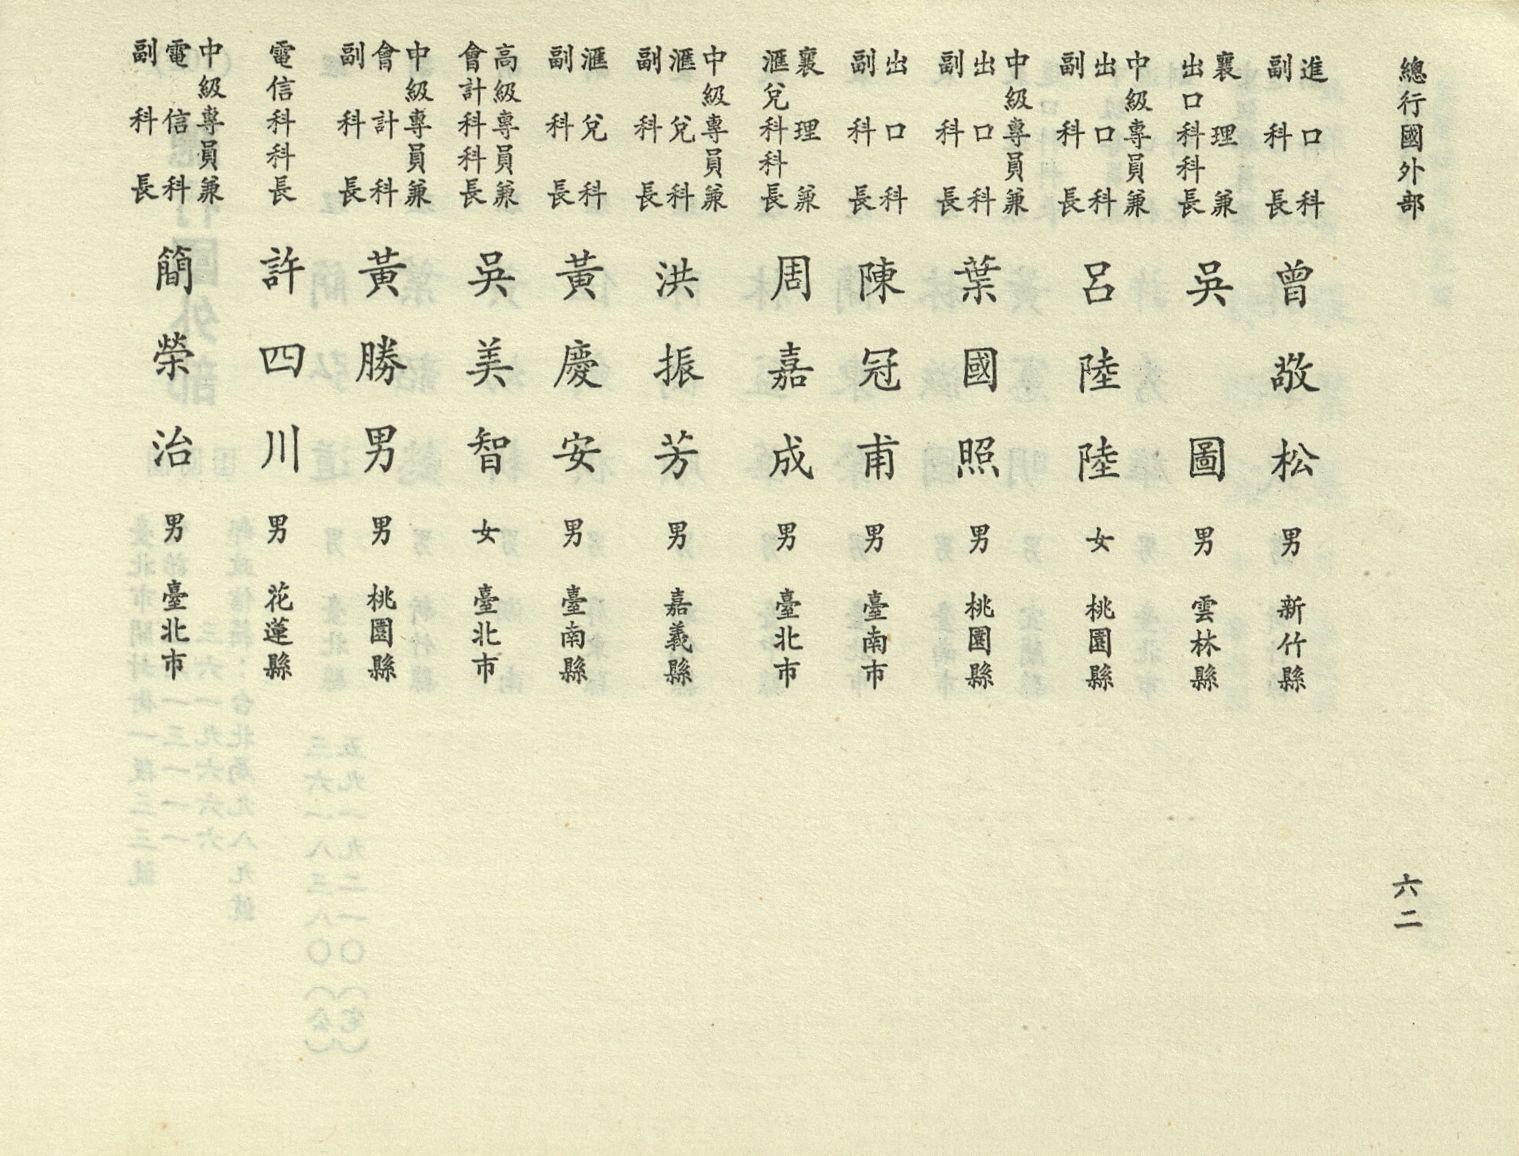 總行國外部
進口科
副科長
曾敬松 男 新竹縣
襄理兼
出口科科長
吳圖 男 雲林縣
中級專員兼
出口科
副科長
呂陸陸 女 桃園縣
中級專員兼
出口科
副科長
葉國照 男 桃園縣
出口科
副科長
陳冠甫 男 臺南市
襄理兼
滙兌科科長
周嘉成 男 臺北市
中級專員兼
滙兌科
副科長
洪振芳 男 嘉義縣
滙兌科
副科長
黃慶安 男 臺南縣
高級專員兼
會計科科長
吳美智 女 臺北市
中級專員兼
會計科
副科長
黃勝男 男 桃園縣
電信科科長
許四川 男 花蓮縣
中級專員兼
電信科
副科長
簡榮治 男 臺北市
六二